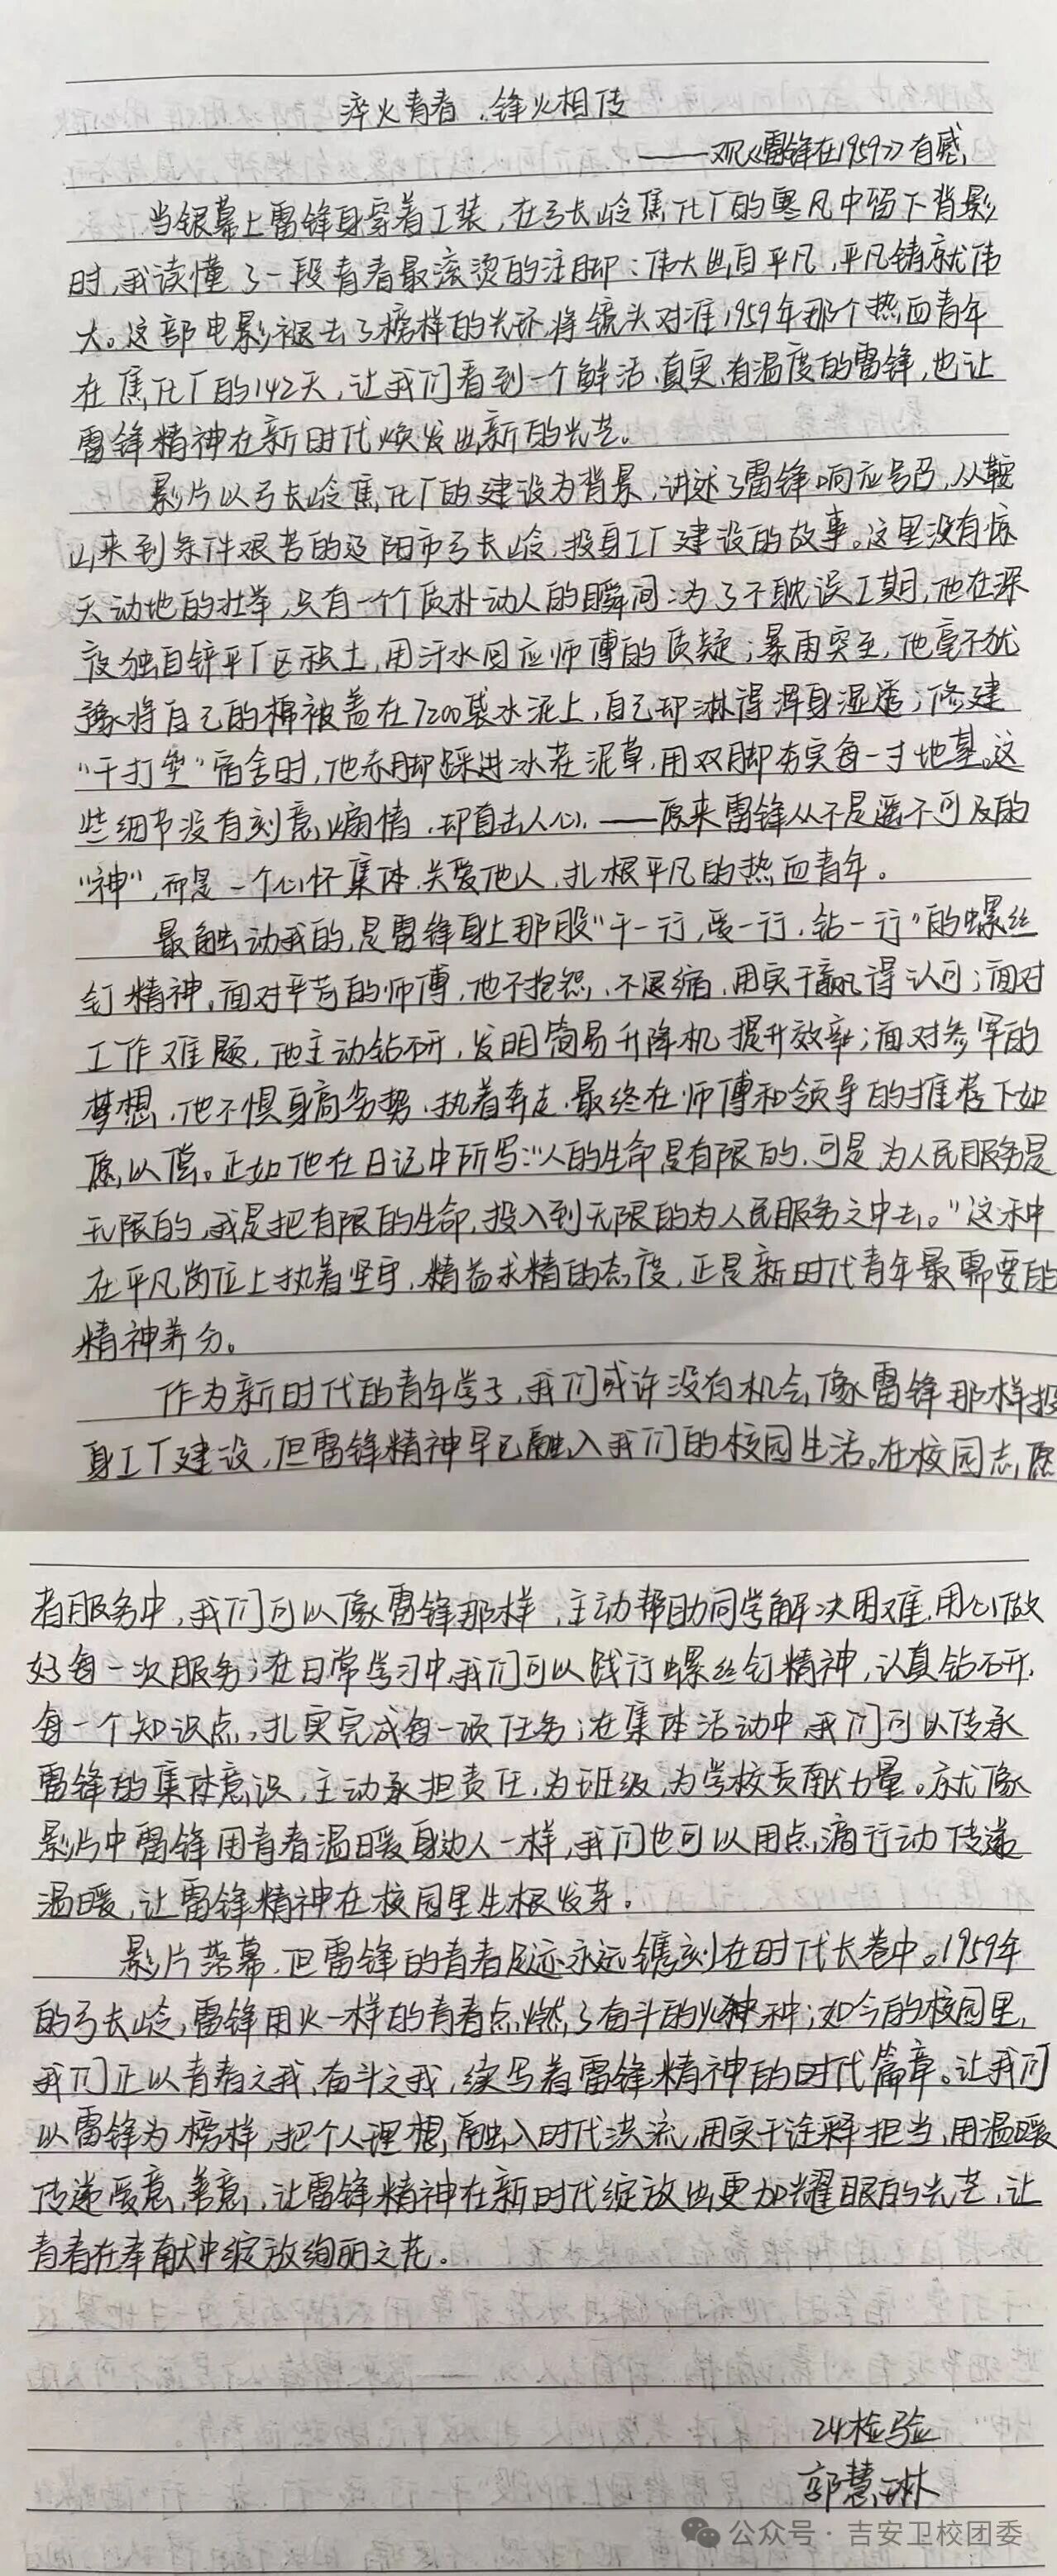 淬火青春,锋火相传
——观《雷锋在1959》有感
当银幕上雷锋身穿着工装,在弓长岭焦化厂的寒风中留下背影
时,我读懂了一段青春最滚烫的注脚:伟大出自平凡,平凡铸就伟
大。这部电影褪去了榜样的光环,将镜头对准1959年那个热血青年
在焦化厂的142天,让我们看到一个鲜活、真实、有温度的雷锋,也让
雷锋精神在新时代焕发出新的光芒。
影片以弓长岭焦化厂的建设为背景,讲述了雷锋响应号召,从鞍
山来到条件艰苦的辽阳市弓长岭,投身工厂建设的故事。这里没有惊
天动地的壮举,只有一个个质朴动人的瞬间:为了不耽误工期,他在深
夜独自铲平厂区积土,用汗水回应师傅的质疑;暴雨突至,他毫不犹
豫将自己的棉被盖在7200袋水泥上,自己却淋得浑身湿透;修建
“干打垒”宿舍时,他赤脚踩进冰茬泥草,用双脚夯实每一寸地基。这
些细节没有刻意煽情,却直击人心——原来雷锋从不是遥不可及的
“神”,而是一个心怀集体、关爱他人、扎根平凡的热血青年。
最触动我的,是雷锋身上那股“干一行,爱一行,钻一行”的螺丝
钉精神。面对严苛的师傅,他不抱怨、不退缩,用实干赢得认可;面对
工作难题,他主动钻研,发明简易升降机提升效率;面对参军的
梦想,他不惧身高劣势,执着奔走,最终在师傅和领导的推荐下如
愿以偿。正如他在日记中所写:“人的生命是有限的,可是为人民服务是
无限的,我是把有限的生命,投入到无限的为人民服务之中去。”这种
在平凡岗位上执着坚守,精益求精的态度,正是新时代青年最需要的
精神养分。
作为新时代的青年学子,我们或许没有机会像雷锋那样投
身工厂建设,但雷锋精神早已融入我们的校园生活。在校园志愿
者服务中,我们可以像雷锋那样,主动帮助同学解决困难,用心做
好每一次服务;在日常学习中,我们可以践行螺丝钉精神,认真钻研
每一个知识点,扎实完成每一项任务;在集体活动中,我们可以传承
雷锋的集体意识,主动承担责任,为班级,为学校贡献力量。就像
影片中雷锋用青春温暖身边人一样,我们也可以用点滴行动传递
温暖,让雷锋精神在校园里生根发芽。
影片落幕,但雷锋的青春足迹永远镌刻在时代长卷中。1959年
的弓长岭,雷锋用火一样的青春点燃了奋斗的火种;如今的校园里,
我们正以青春之我,奋斗之我,续写着雷锋精神的时代篇章。让我们
以雷锋为榜样,把个人理想融入时代洪流,用实干诠释担当,用温暖
传递爱意、善意,让雷锋精神在新时代绽放出更加耀眼的光芒,让
青春在奉献中绽放绚丽之花。
24检验
郭慧琳
公众号·吉安卫校团委